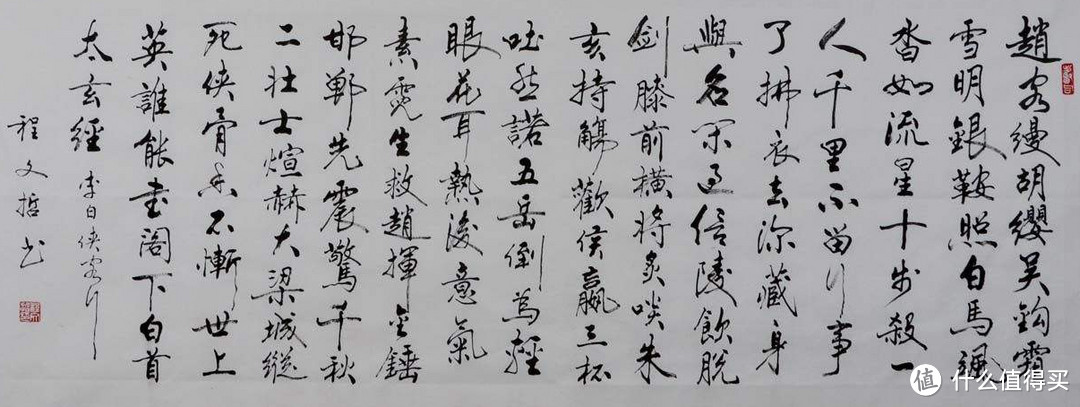 趙客縵胡纓吳鈎霜
雪明銀鞍照白馬颯
沓如流星十步殺一
人千里不留行事
了拂衣去深藏身
與名閑過信陵飲脫
劍膝前橫將炙啖朱
亥持觴歡侯嬴三杯
吐然諾五岳倒爲輕
眼花耳熱後意氣
素霓生救趙揮金錘
邯鄲先震驚千秋
二壯士煊赫大梁城縱
死俠骨香不慚世上
英誰能書閣下白首
太玄經 李白俠客行
程文哲书
值 什么值得买